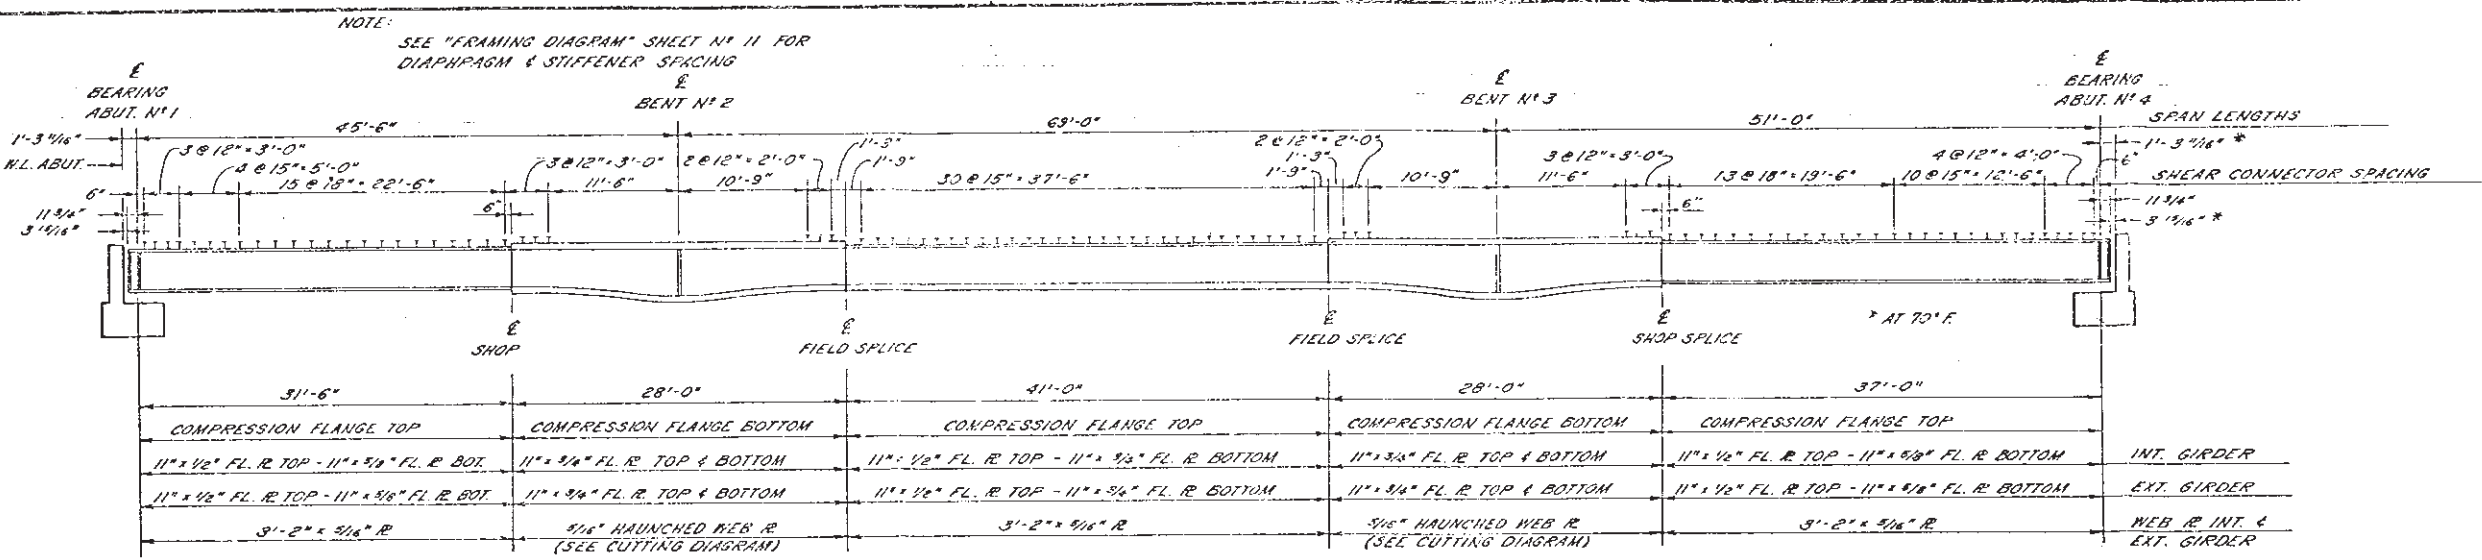 NOTE:
SEE "FRAMING DIAGRAM" SHEET Nº 11 FOR
DIAPHPAGM & STIFFENER SPACING
℄
BEARING
ABUT. Nº 1
℄
BENT Nº 2
℄
BENT Nº 3
℄
BEARING
ABUT. Nº 4
1'-3 11/16"
45'-6"
69'-0"
51'-0"
SPAN LENGTHS
1'-3 11/16" *
W.L. ABUT.
3 @ 12" = 3'-0"
4 @ 15" = 5'-0"
15 @ 18" = 22'-6"
3 @ 12" = 3'-0"
11'-6"
2 @ 12" = 2'-0"
10'-9"
1'-3"
1'-9"
30 @ 15" = 37'-6"
2 @ 12" = 2'-0"
1'-3"
1'-9"
10'-9"
3 @ 12" = 3'-0"
11'-6"
13 @ 18" = 19'-6"
10 @ 15" = 12'-6"
4 @ 12" = 4'-0"
6"
SHEAR CONNECTOR SPACING
6"
11 3/4"
3 15/16"
6"
6"
11 3/4"
3 15/16" *
℄
SHOP
℄
FIELD SPLICE
℄
FIELD SPLICE
℄
SHOP SPLICE
* AT 70° F.
31'-6"
28'-0"
41'-0"
28'-0"
37'-0"
COMPRESSION FLANGE TOP
COMPRESSION FLANGE BOTTOM
COMPRESSION FLANGE TOP
COMPRESSION FLANGE BOTTOM
COMPRESSION FLANGE TOP
11" x 1/2" FL. ℞ TOP - 11" x 5/8" FL. ℞ BOT.
11" x 3/4" FL. ℞ TOP & BOTTOM
11" x 1/2" FL. ℞ TOP - 11" x 3/4" FL. ℞ BOTTOM
11" x 3/4" FL. ℞ TOP & BOTTOM
11" x 1/2" FL. ℞ TOP - 11" x 5/8" FL. ℞ BOTTOM
INT. GIRDER
11" x 1/2" FL. ℞ TOP - 11" x 5/8" FL. ℞ BOT.
11" x 3/4" FL. ℞ TOP & BOTTOM
11" x 1/2" FL. ℞ TOP - 11" x 3/4" FL. ℞ BOTTOM
11" x 3/4" FL. ℞ TOP & BOTTOM
11" x 1/2" FL. ℞ TOP - 11" x 5/8" FL. ℞ BOTTOM
EXT. GIRDER
3'-2" x 5/16" ℞
5/16" HAUNCHED WEB ℞
(SEE CUTTING DIAGRAM)
3'-2" x 5/16" ℞
5/16" HAUNCHED WEB ℞
(SEE CUTTING DIAGRAM)
3'-2" x 5/16" ℞
WEB ℞ INT. &
EXT. GIRDER